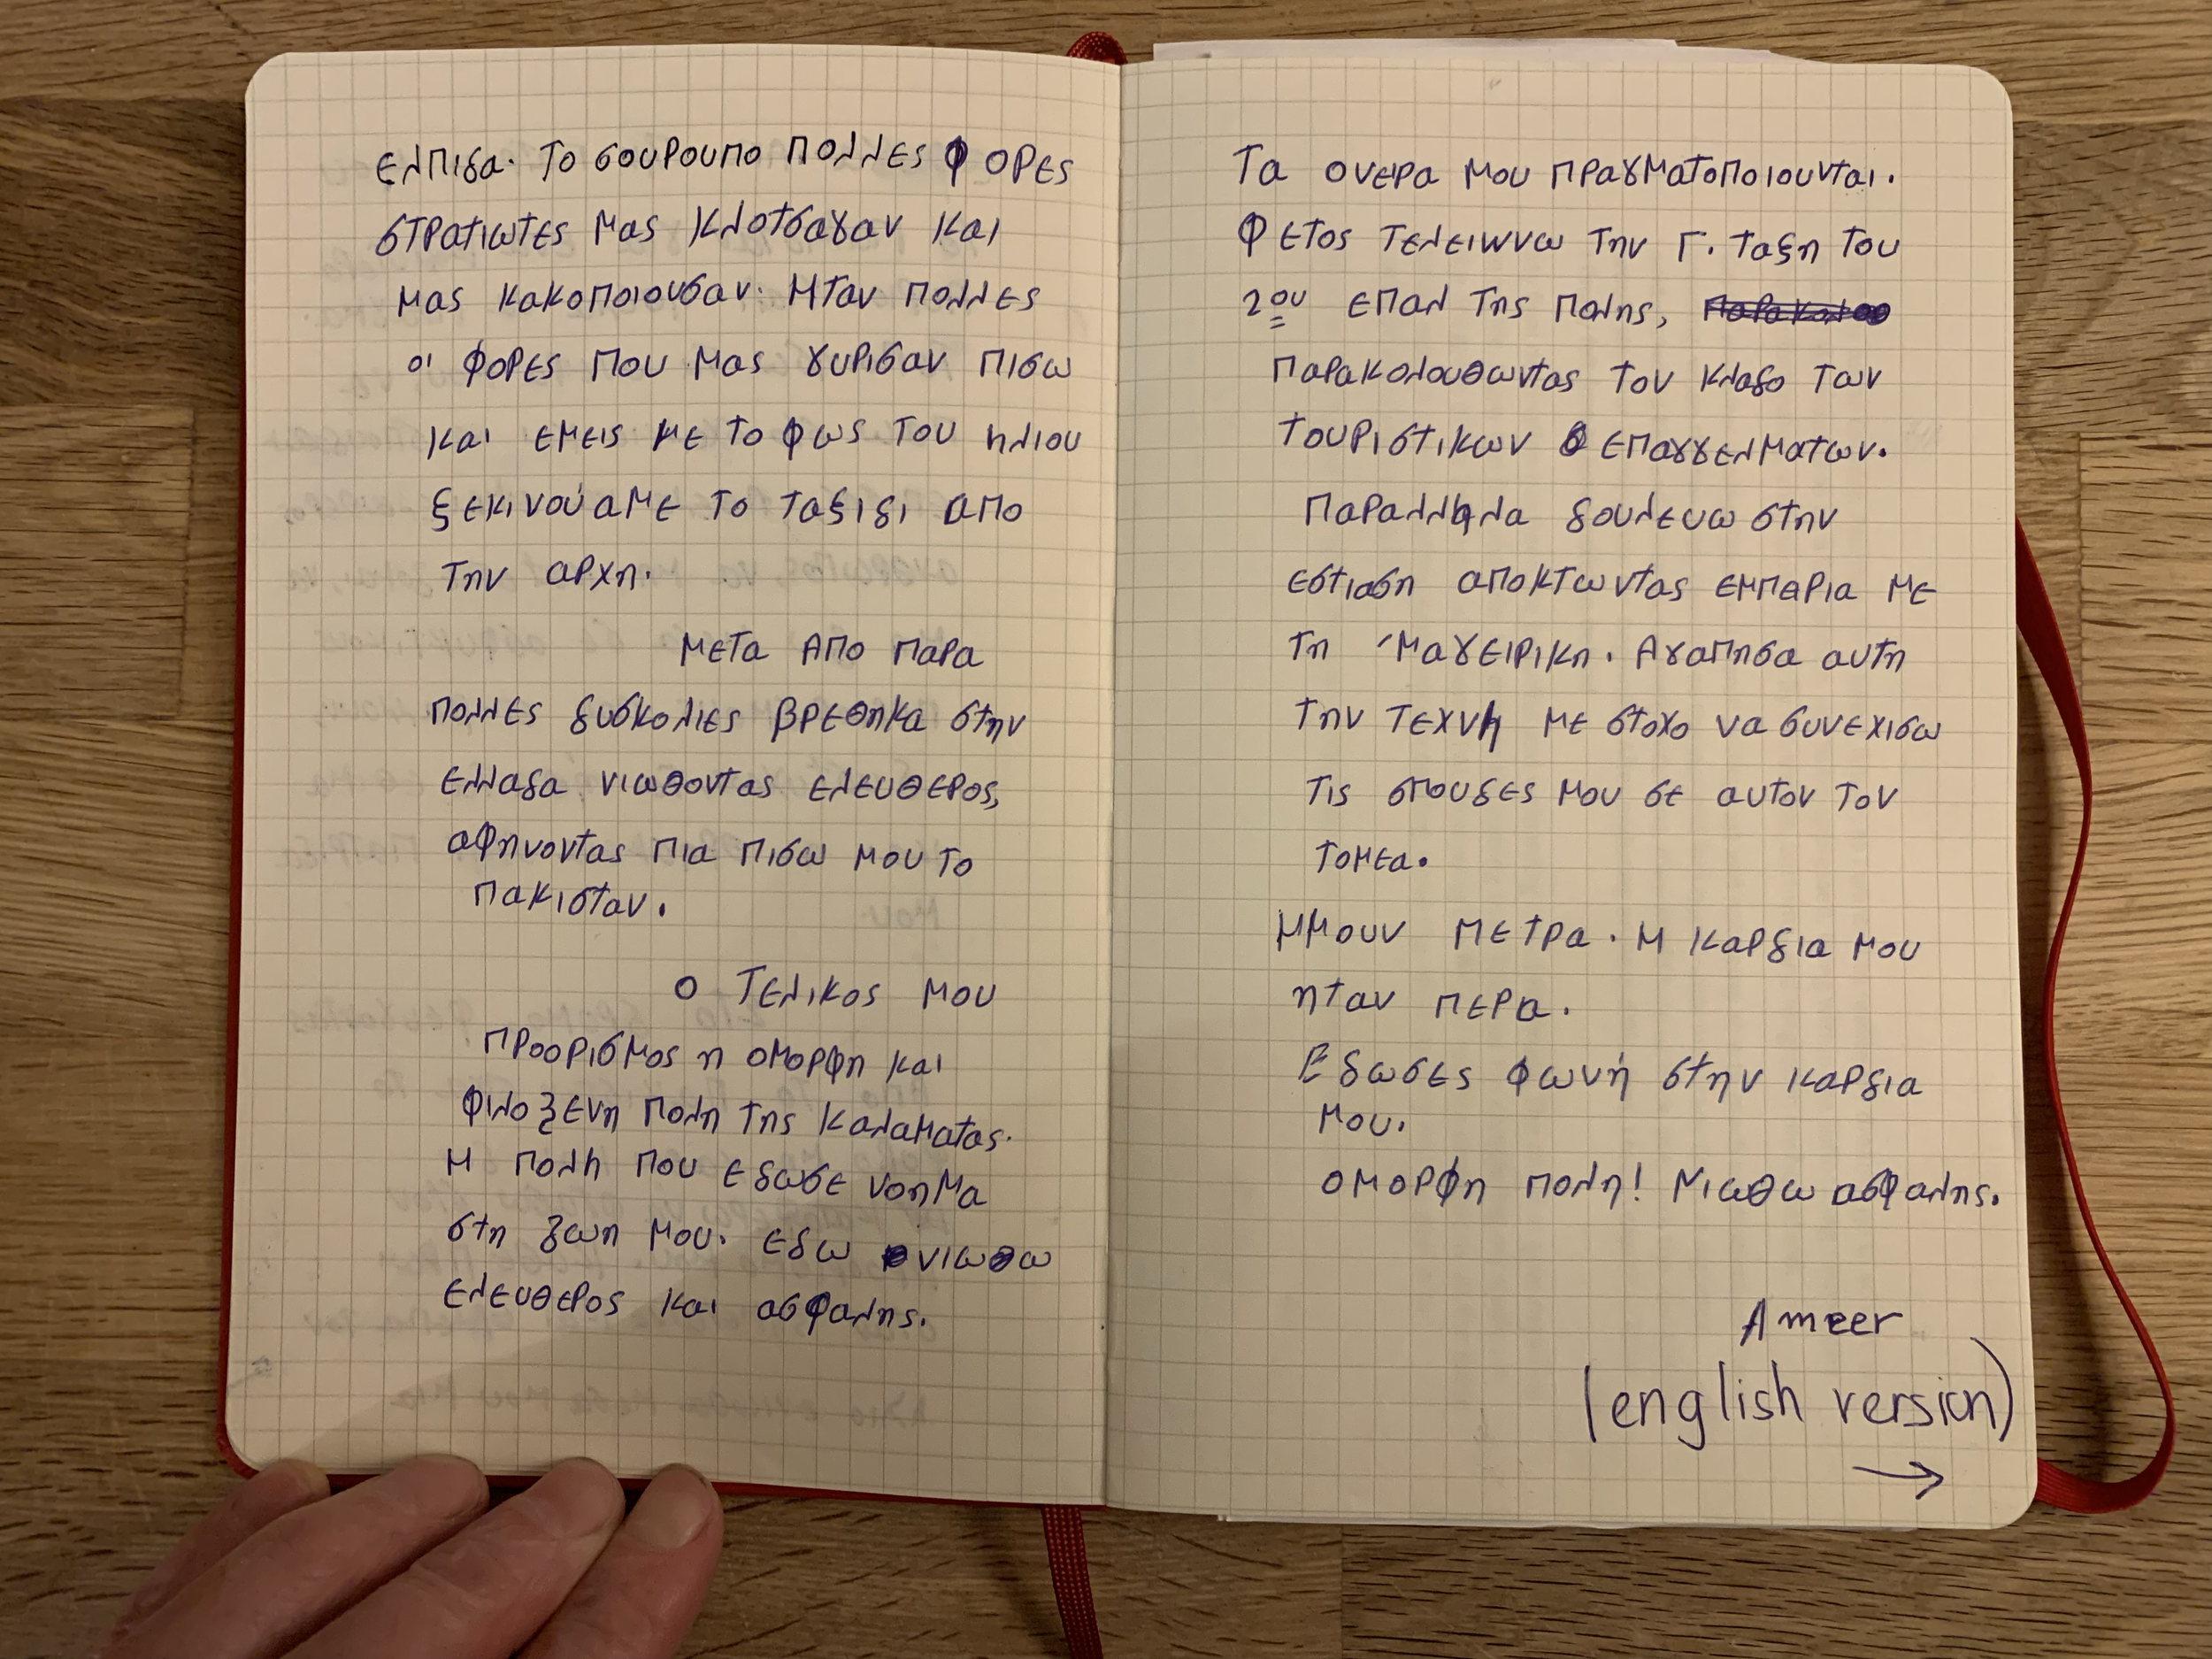 ελπιδα. Το σουρουπο πολλες φορες
στρατιωτες μας κλοτσαγαν και
μας κακοποιουσαν. Ηταν πολλες
οι φορες που μας γυρισαν πισω
και εμεις με το φως του ηλιου
ξεκινούαμε το ταξιδι απο
την αρχη.
μετα απο παρα
πολλες δυσκολιες βρεθηκα στην
ελλαδα νιωθοντας ελευθερος,
αφηνοντας πια πισω μου το
πακισταν.
ο Τελικος μου
προορισμος η ομορφη και
φιλοξενη πολη της καλαματας.
Η πολη που εδωσε νοημα
στη ζωη μου. εδω νιωθω
ελευθερος και ασφαλης.
Τα ονειρα μου πραγματοποιουνται.
Φετος τελειωνω την Γ. ταξη του
2ου επαλ της πολης,
παρακολουθωντας τον κλαδο των
τουριστικων επαγγελματων.
Παραλληλα δουλευω στην
εστιαση αποκτωντας εμπειρια με
τη μαγειρικη. Αγαπησα αυτη
την τεχνη με στοχο να συνεχισω
τις σπουδες μου σε αυτον τον
τομεα.
Ημουν πετρα. Η καρδια μου
ηταν περα.
Εδωσες φωνή στην καρδια
μου.
ομορφη πολη! Νιωθω ασφαλης.
Ameer
(english version)
→